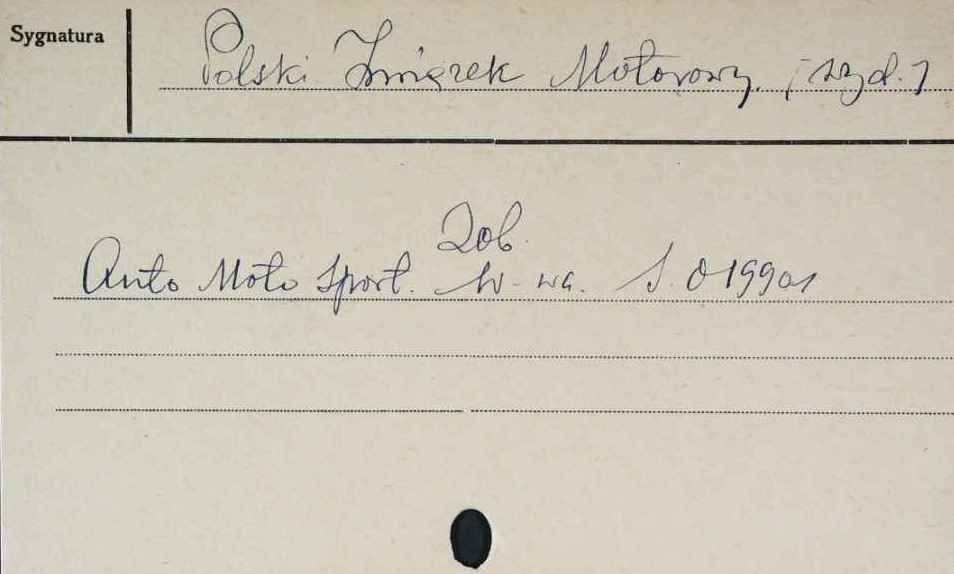 Sygnatura
Polski Związek Motorowy. [wyd.]
Zob.
Auto Moto Sport. W-wa. S. 019901